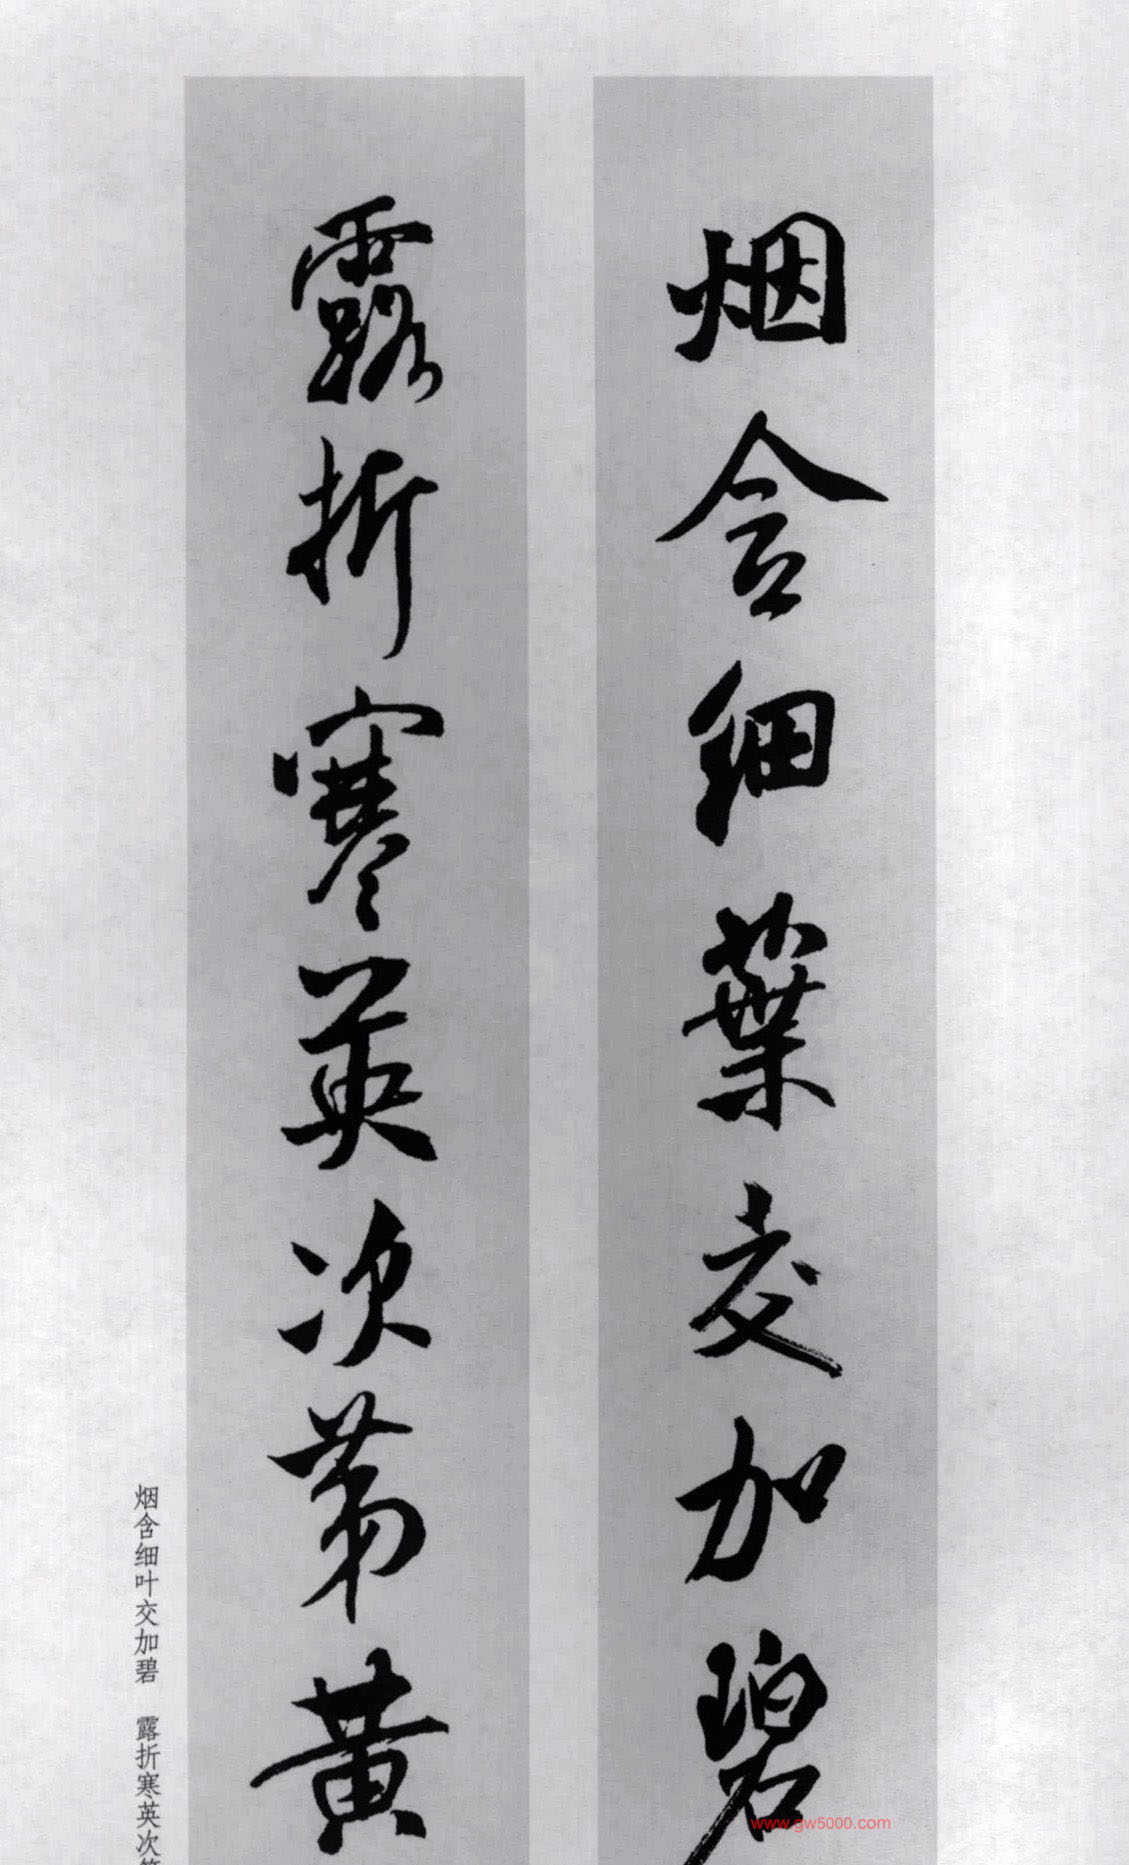 烟含细葉交加碧
露折寒英次第黄
烟含细叶交加碧 露折寒英次
www.gw5000.com